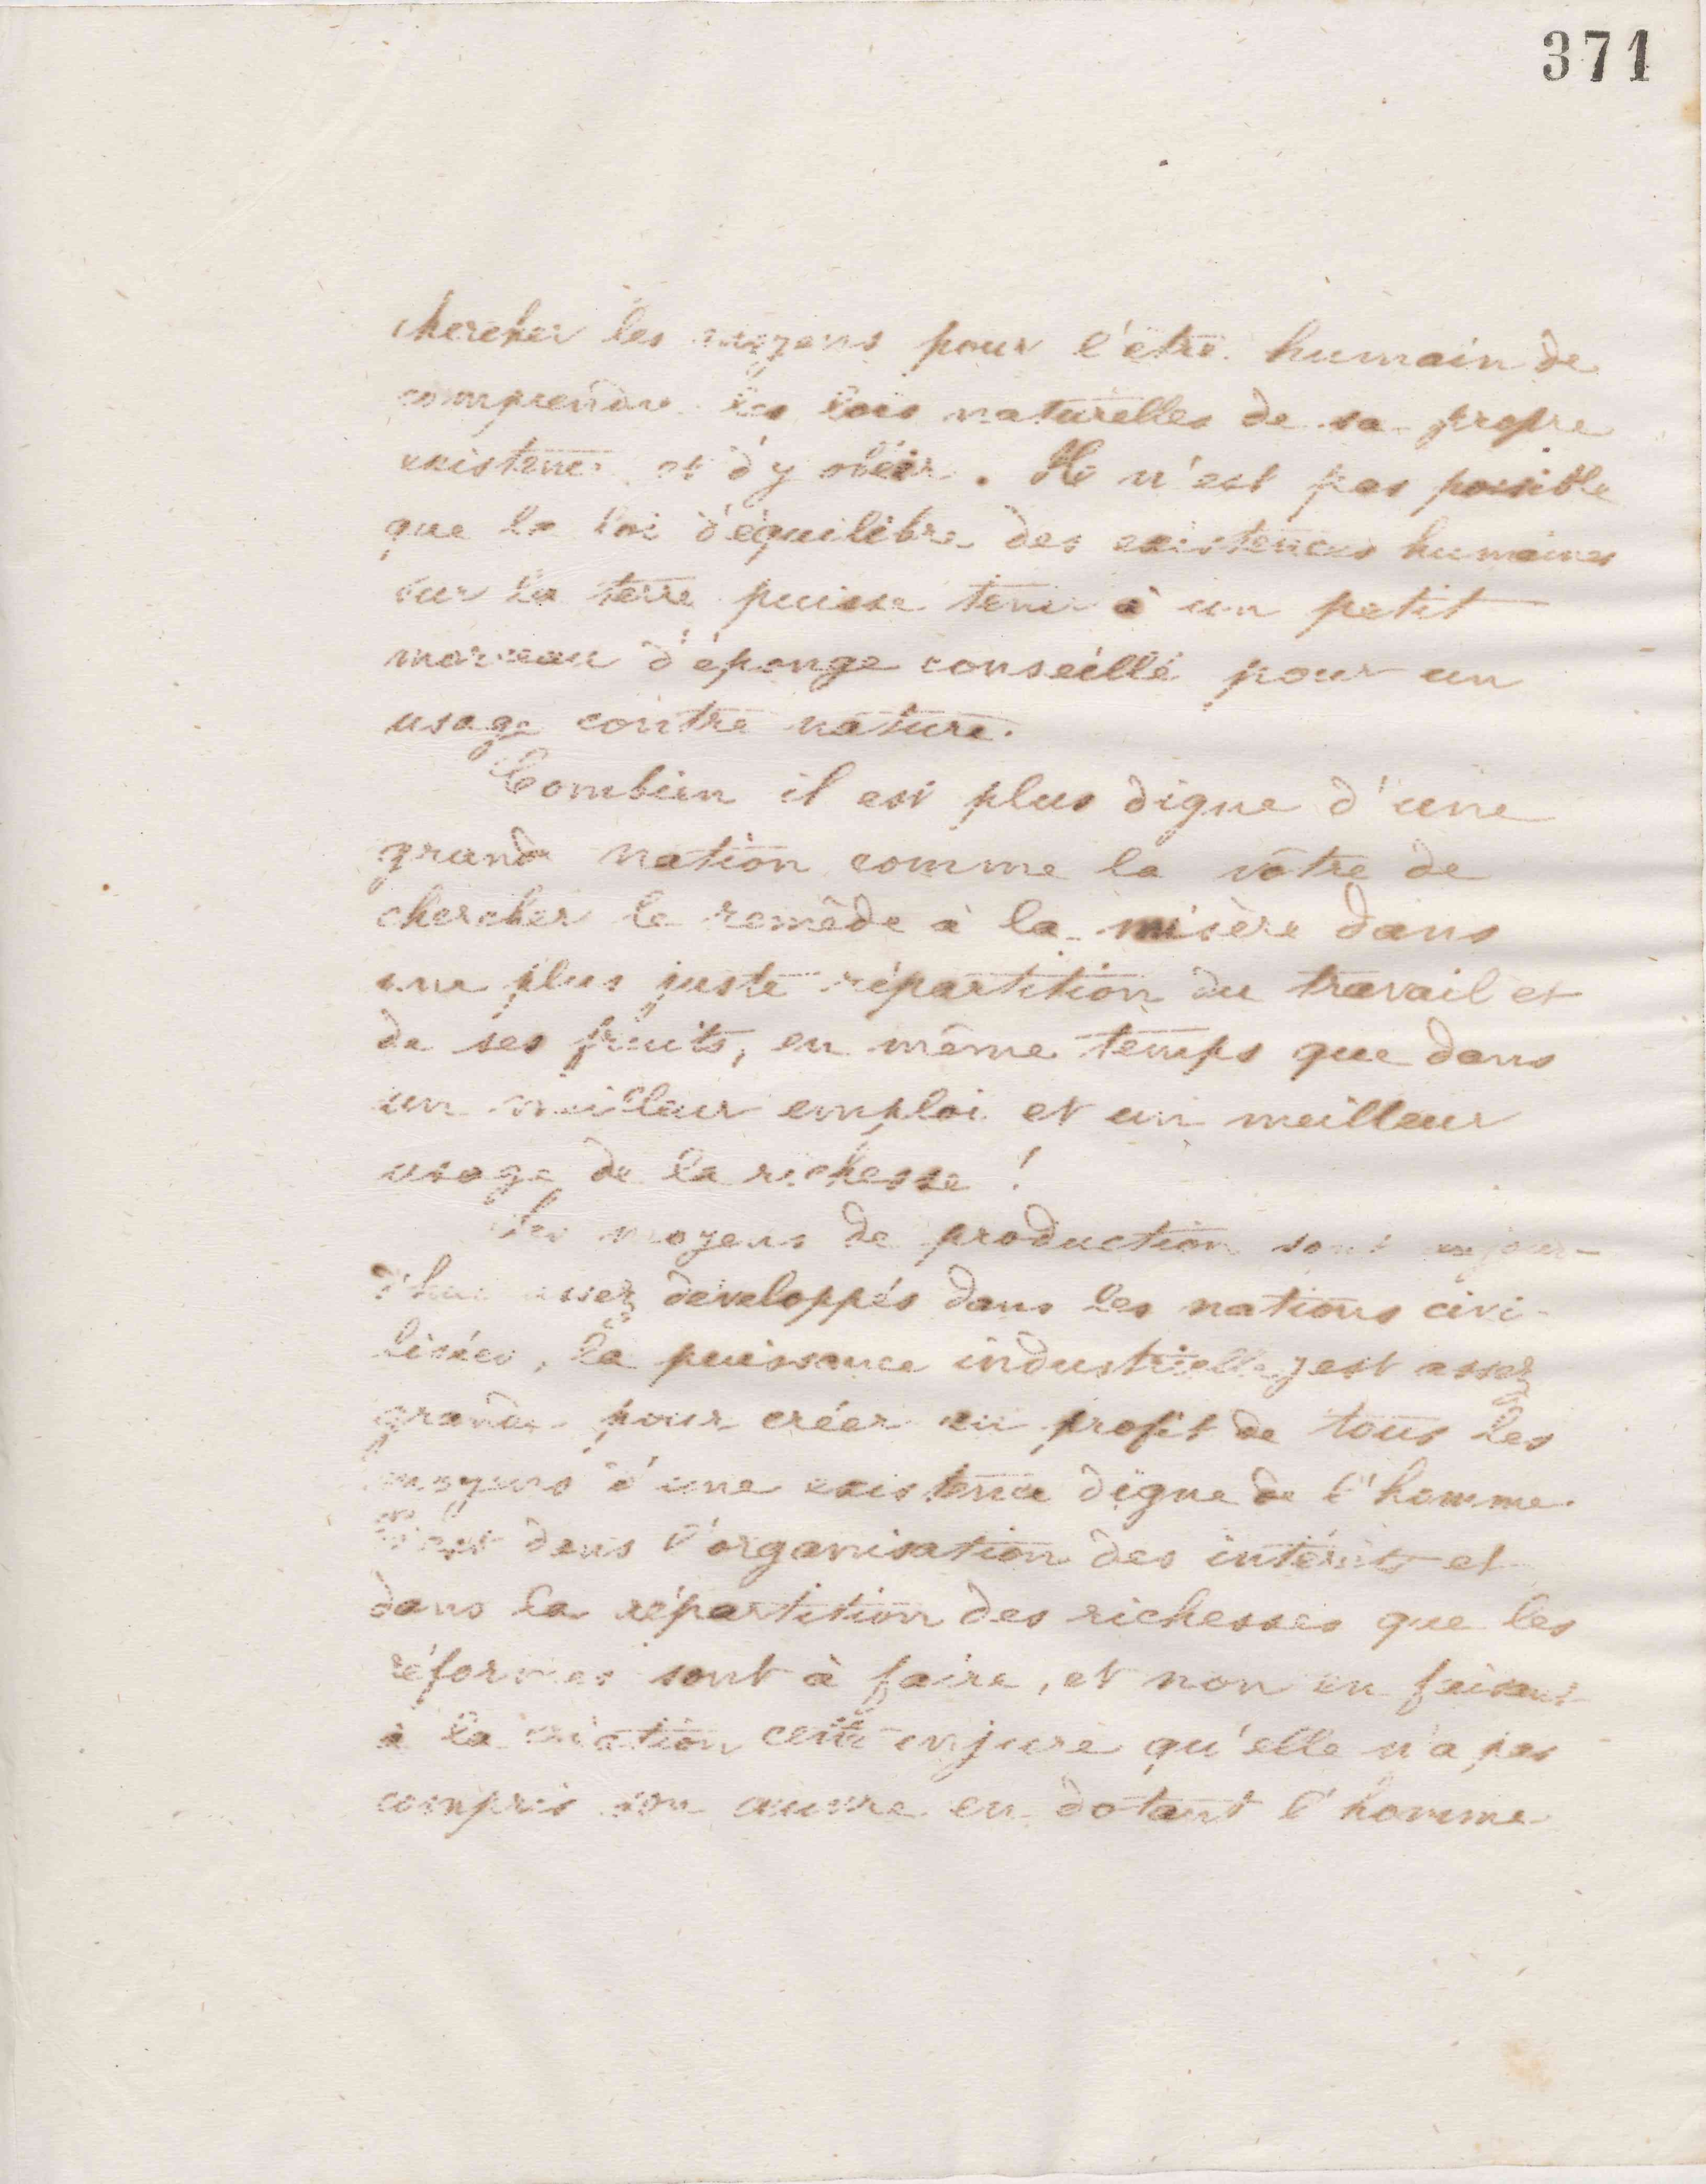 371
chercher les moyens pour l'être humain de
comprendre les lois naturelles de sa propre
existence et d'y obéir. Il n'est pas possible
que la loi d'équilibre des existences humaines
sur la terre puisse tenir à un petit
morceau d'éponge conseillé pour un
usage contre nature.
Combien il est plus digne d'une
grande nation comme la vôtre de
chercher le remède à la misère dans
une plus juste répartition du travail et
de ses fruits, en même temps que dans
un meilleur emploi et un meilleur
usage de la richesse !
Les moyens de production sont aujour-
d'hui assez développés dans les nations civi-
lisées, la puissance industrielle y est assez
grande pour créer au profit de tous les
moyens d'une existence digne de l'homme.
C'est dans l'organisation des intérêts et
dans la répartition des richesses que les
réformes sont à faire, et non en faisant
à la création cette injure qu'elle n'a pas
compris son œuvre en dotant l'homme